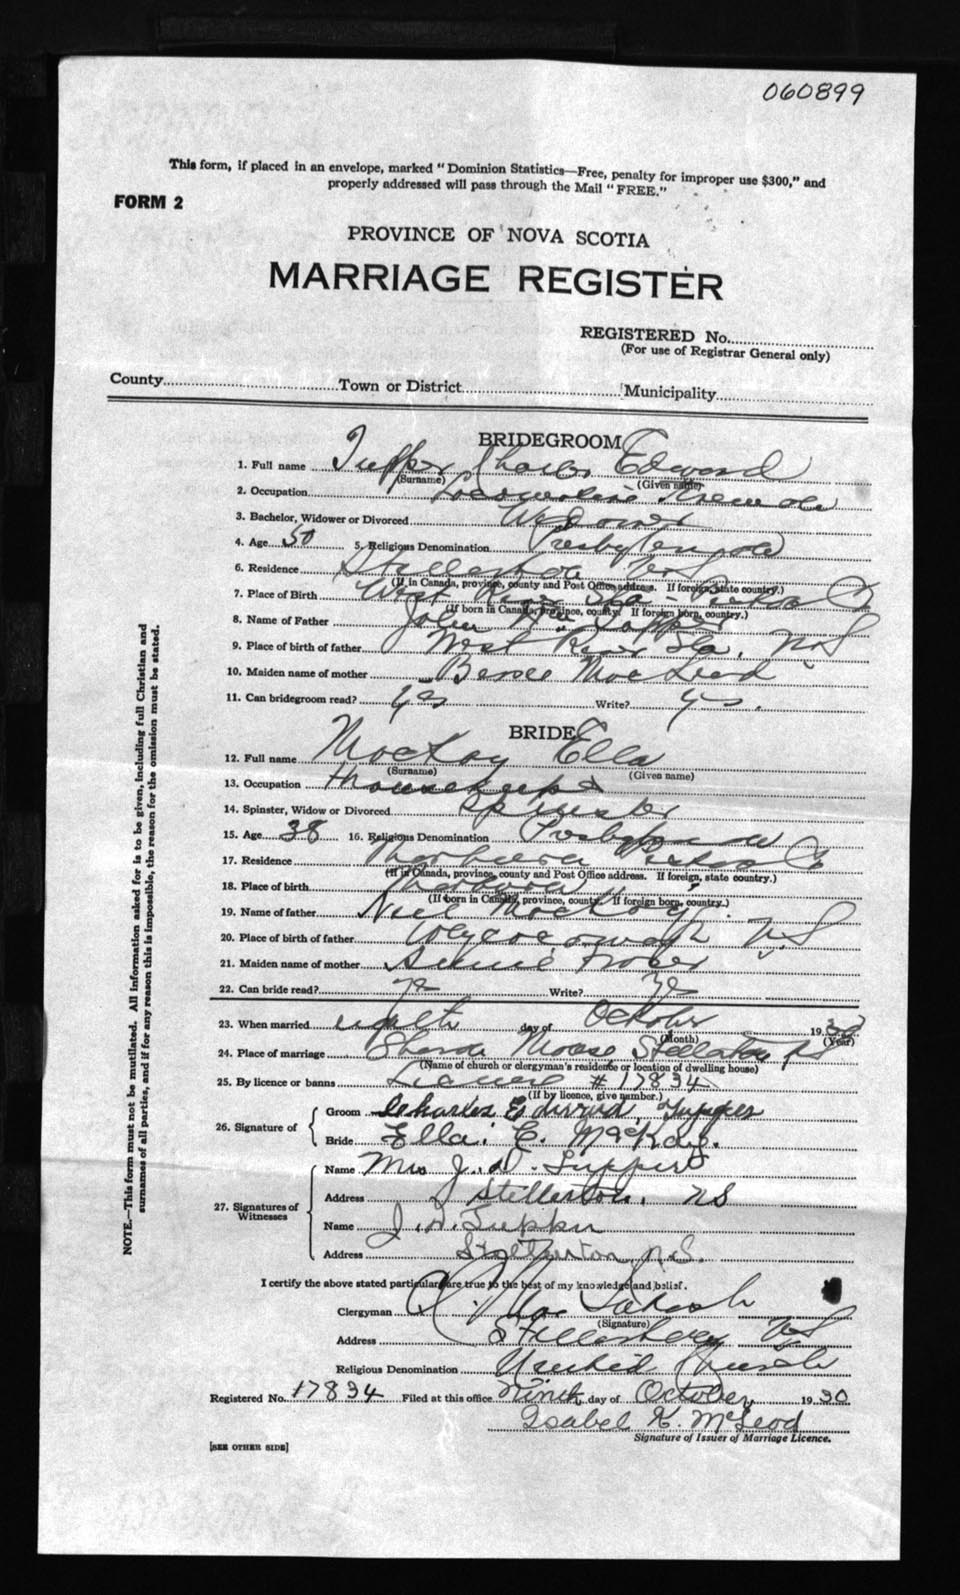 060899
This form, if placed in an envelope, marked "Dominion Statistics—Free, penalty for improper use $300," and
properly addressed will pass through the Mail "FREE."
FORM 2
PROVINCE OF NOVA SCOTIA
MARRIAGE REGISTER
REGISTERED No.
(For use of Registrar General only)
County Town or District Municipality
BRIDEGROOM
1. Full name Tupper Charles Edward
(Surname) (Given name)
2. Occupation Locomotive
3. Bachelor, Widower or Divorced Widower
4. Age 50 5. Religious Denomination Presbyterian
6. Residence Stellarton N.S.
(If in Canada, province, county and Post Office address. If foreign, state country.)
7. Place of Birth West River Sta. Pictou Co
(If born in Canada, province, county. If foreign born, country.)
8. Name of Father John Tupper
9. Place of birth of father West River Sta. N.S
10. Maiden name of mother MacLeod
11. Can bridegroom read? yes Write? yes.
BRIDE
12. Full name MacKay Ella
(Surname) (Given name)
13. Occupation Housekeeper
14. Spinster, Widow or Divorced Spinster
15. Age 38 16. Religious Denomination Presbyterian
17. Residence Pictou Co
(If in Canada, province, county and Post Office address. If foreign, state country.)
18. Place of birth
(If born in Canada, province, county. If foreign born, country.)
19. Name of father Neil MacKay
20. Place of birth of father N.S
21. Maiden name of mother Annie Fraser
22. Can bride read? yes Write? yes
23. When married eighth day of October 1930
(Month) (Year)
24. Place of marriage Manse Stellarton N.S
(Name of church or clergyman's residence or location of dwelling house)
25. By licence or banns License # 17834
(If by licence, give number.)
26. Signature of Groom Charles Edward Tupper
Bride Ella. C. MacKay.
27. Signatures of Witnesses Name Mrs J. D. Tupper
Address Stellarton, N.S
Name J. D. Tupper
Address Stellarton, N.S.
I certify the above stated particulars are true to the best of my knowledge and belief.
Clergyman
(Signature)
Address N.S
Religious Denomination United Church
Registered No. 17834 Filed at this office Ninth day of October 1930
Isabel K. McLeod
Signature of Issuer of Marriage Licence.
[SEE OTHER SIDE]
NOTE.—This form must not be mutilated. All information asked for is to be given, including full Christian and
surnames of all parties, and if for any reason this is impossible, the reason for the omission must be stated.